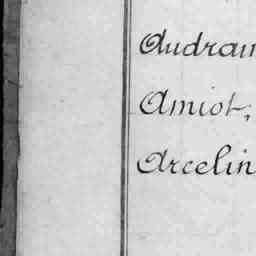 Audrain
Amiot,
Arcelin